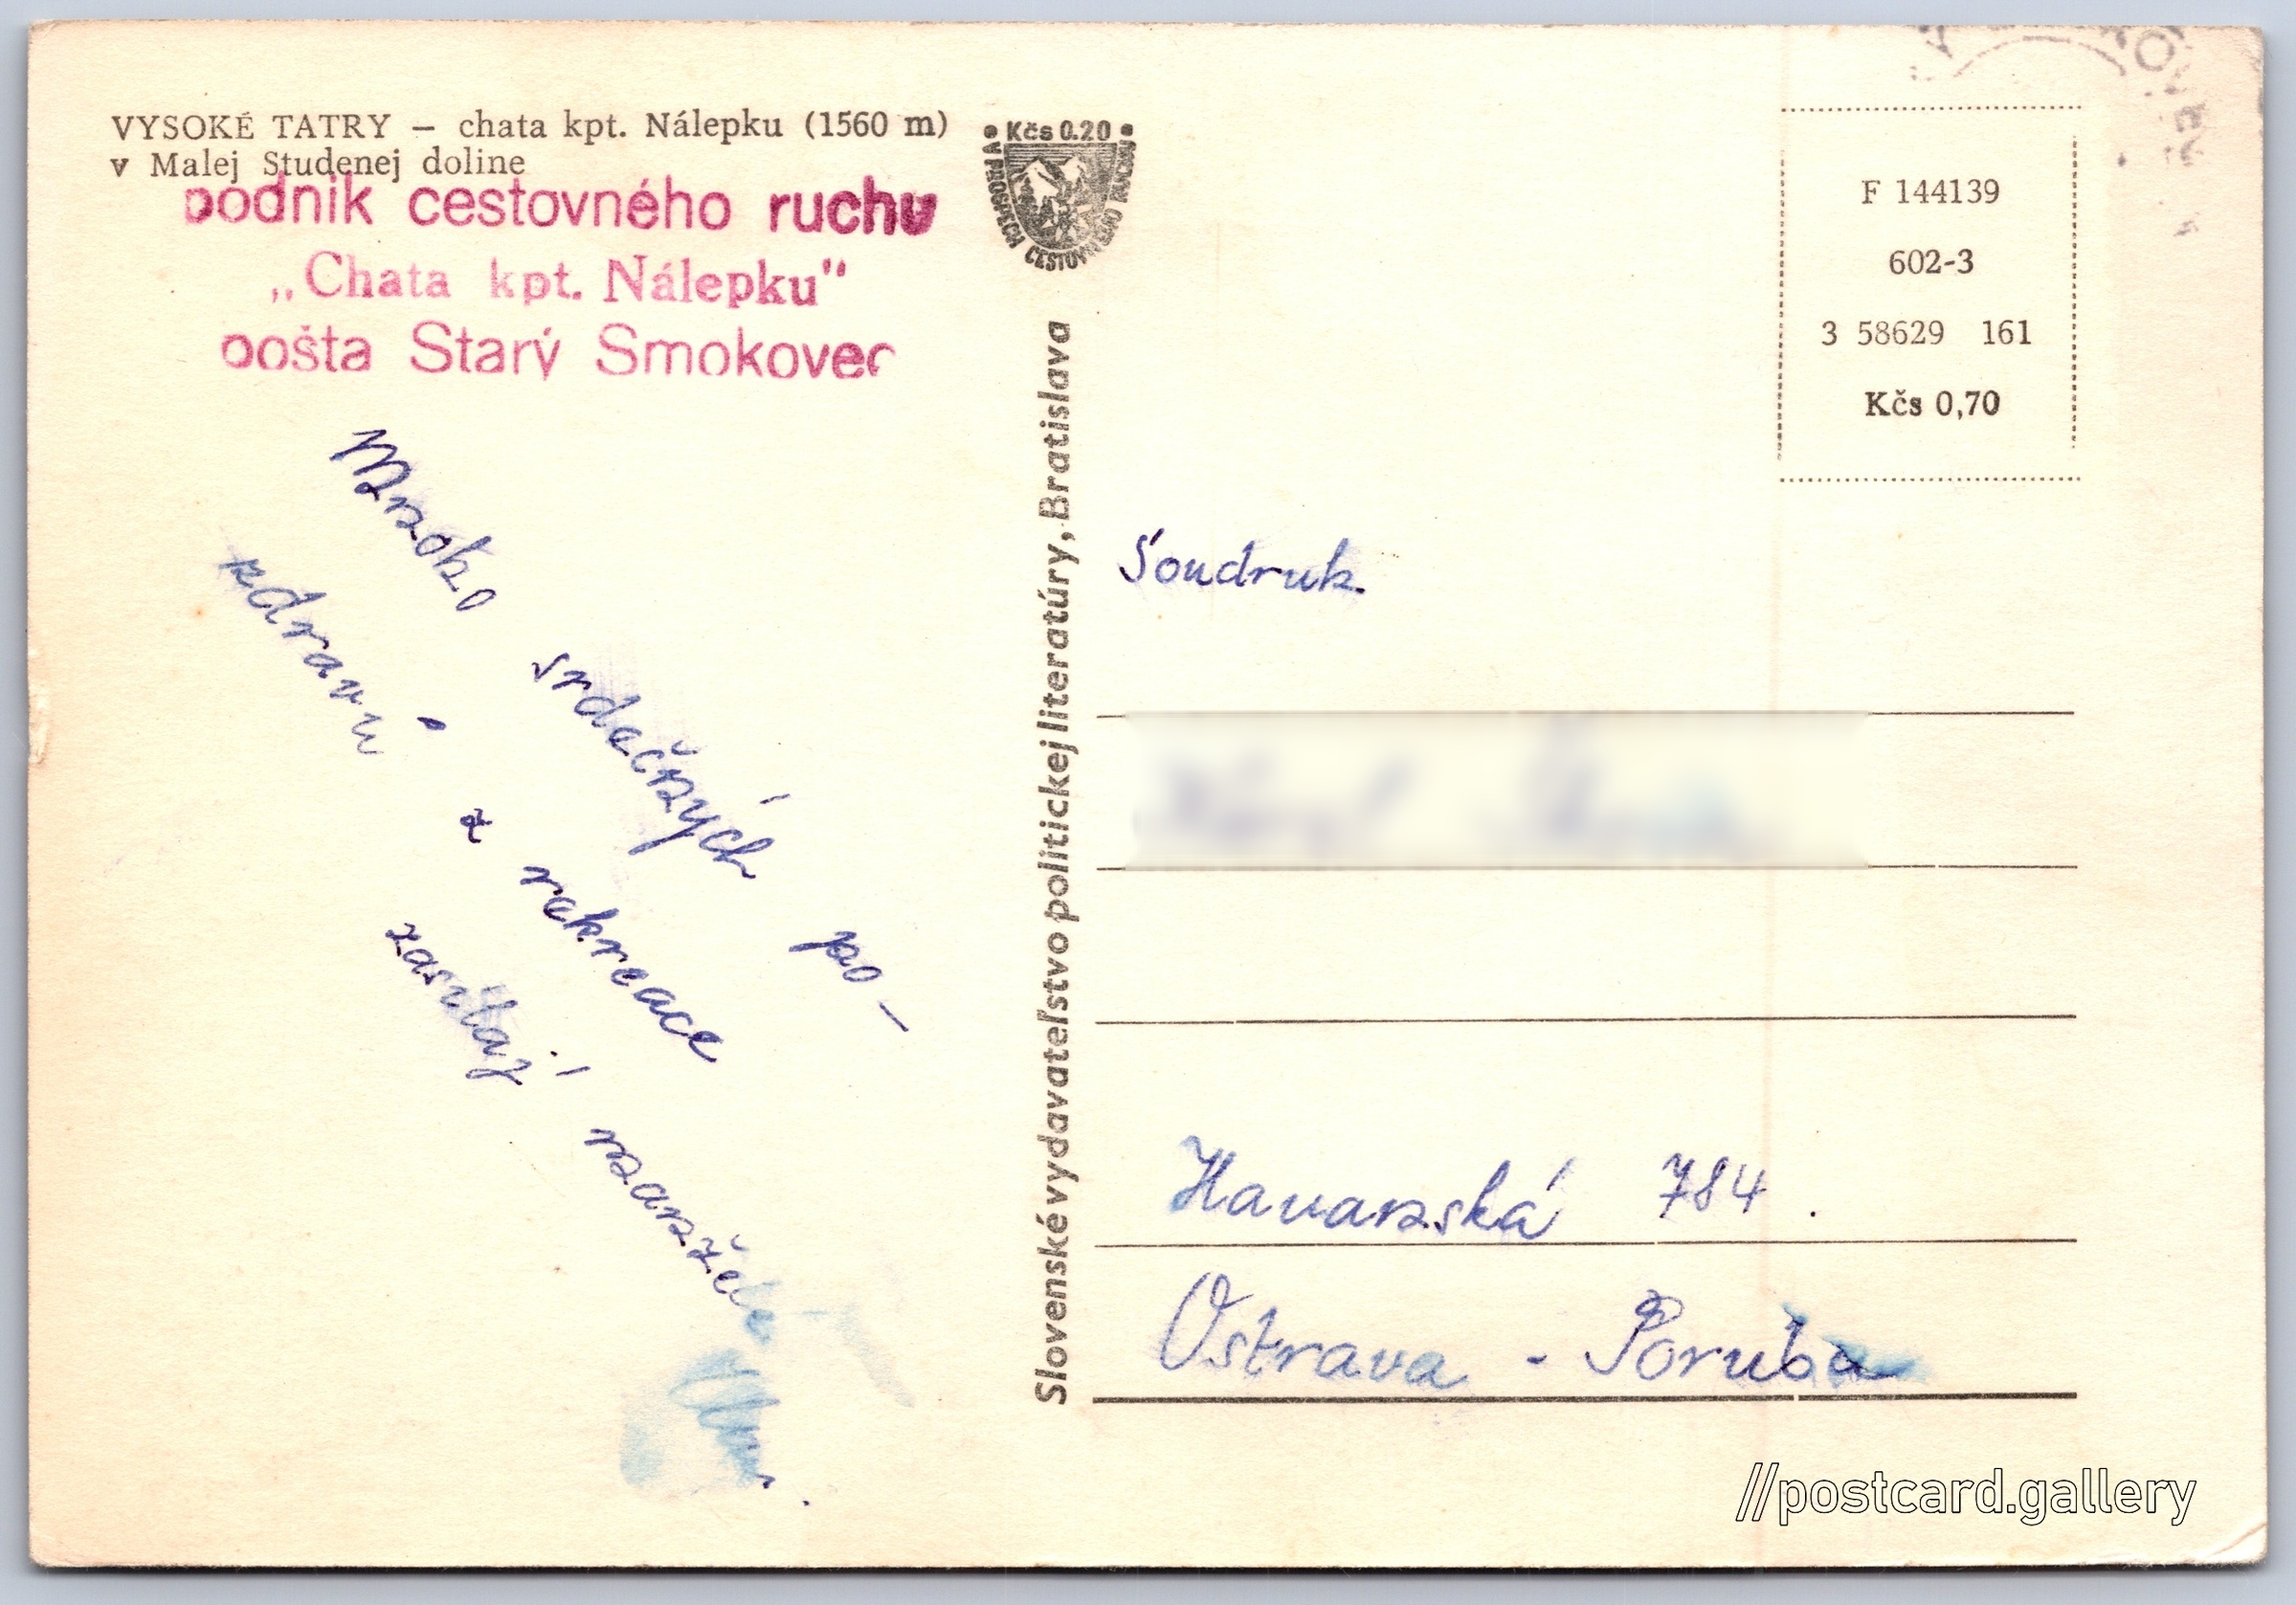 VYSOKÉ TATRY – chata kpt. Nálepku (1560 m)
v Malej Studenej doline
podnik cestovného ruchu
„Chata kpt. Nálepku"
pošta Starý Smokovec
Mnoho srdečných po-
zdravů z rekreace
zasílají manželé
• Kčs 0.20 •
V PROSPECH CESTOVNÉHO RUCHU
Slovenské vydavateľstvo politickej literatúry, Bratislava
F 144139
602-3
3 58629 161
Kčs 0,70
Soudruh
Havanská 784.
Ostrava - Poruba
//postcard.gallery